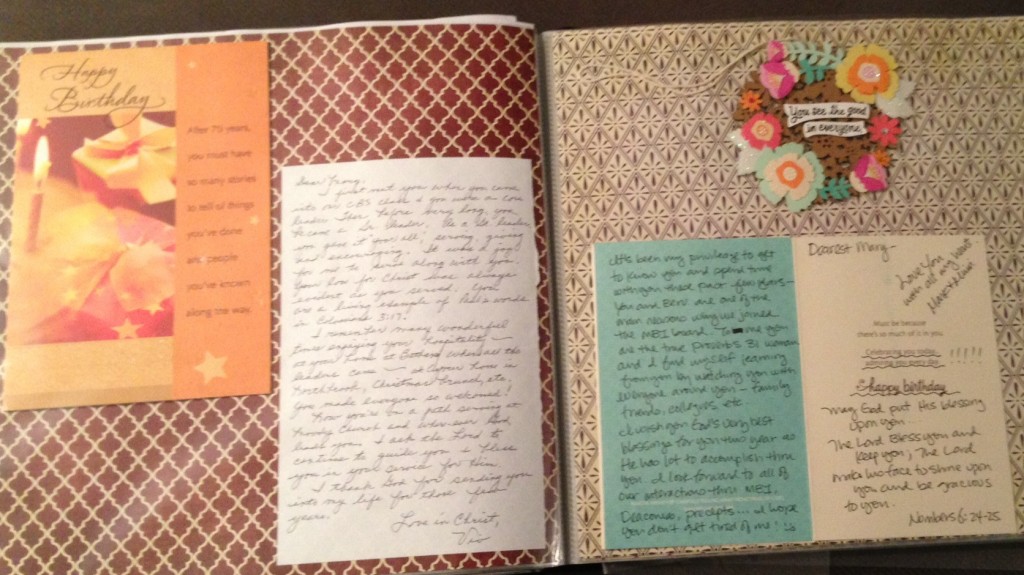 Happy
Birthday
After 75 years,
you must have
so many stories
to tell of things
you've done
and people
you've known
along the way.
I first met you when you came
into our CBS class & you were a core
leader. Then before very long, you
became a leader. As a leader,
you gave it your all, serving, giving
and encouraging. It was a joy
for me to serve along with you.
Your love for Christ was always
evident as you served. You
are a living example of Paul's words
in Colossians 3:17.
I remember many wonderful
times enjoying your hospitality
in your home at Bethany when all the
leaders came at Carver home in
Northbrook, Christmas brunch, etc
You made everyone so welcomed!
Now you're on a path serving at
Moody Church and wherever God
leads you. I ask the Lord to
continue to guide you & bless
you in your service for Him.
I thank God for sending you
into my life for those few
years.
Love in Christ,
You see the good
in everyone
It's been my privilege to get
to know you and spend time
with you these past few years-
You and Bere are one of the
main reasons why we joined
the MBI board. To me you
are the true Proverbs 31 woman
and I find myself learning
from you by watching you with
everyone around you - family
friends, collegues, etc.
I wish you God's very best
blessings for you this year as
He has lot to accomplish thru
you. I look forward to all of
our interactions thru MBI,
Deaconess, precepts... I hope
you don't get tired of me!
Dearest Mary-
Love you
with all my heart
Must be because
there's so much of it in you.
Celebrating you today,
!!!!!
happy birthday
May God put His blessing
upon you...
The Lord Bless you and
keep you; The Lord
make his face to shine upon
you and be gracious
to you.
Numbers 6:24-25